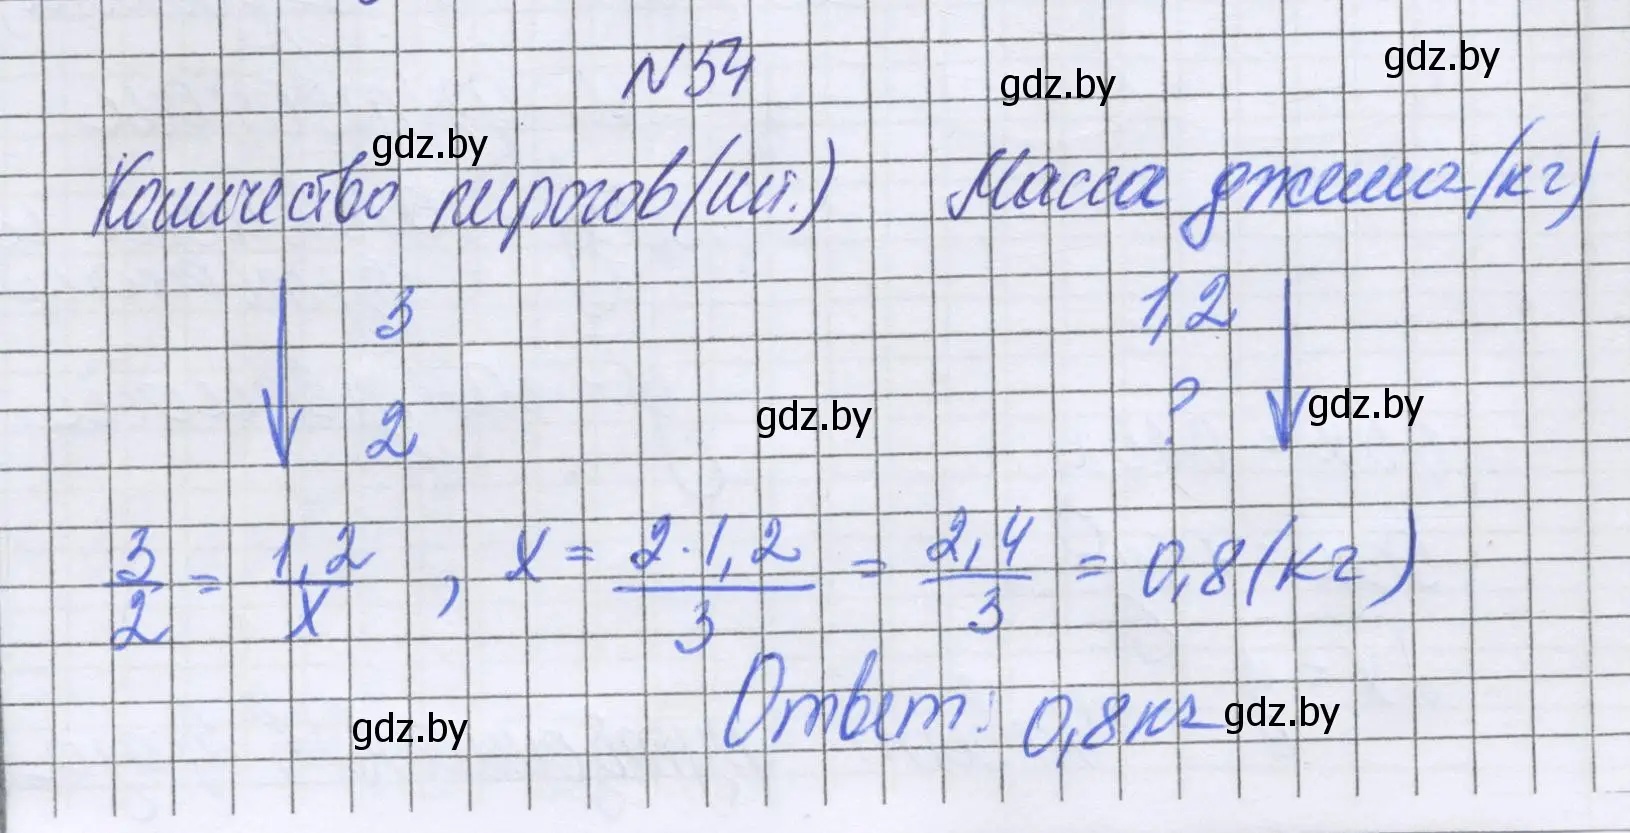 N54
gdz.by
gdz.by
gdz.by
Количество пирогов (шт.) Масса джема (кг)
3 1,2
2 ?
gdz.by
gdz.by
3/2 = 1,2/x , x = 2·1,2/3 = 2,4/3 = 0,8 (кг)
Ответ: 0,8 кг
gdz.by
gdz.by